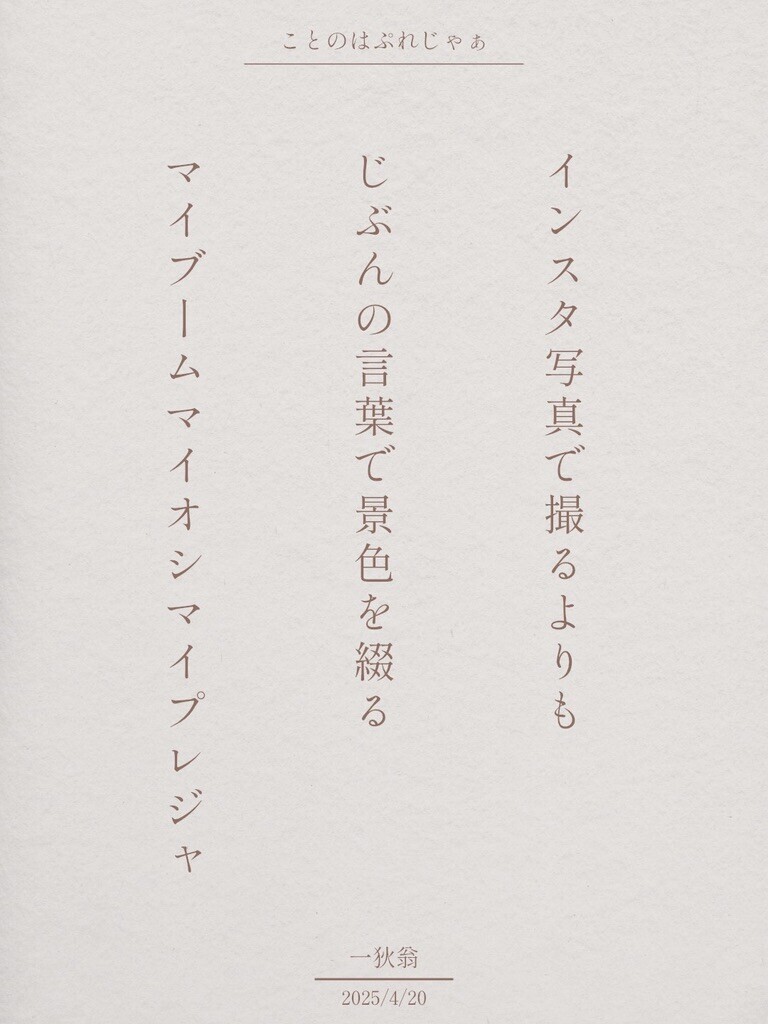 ことのはぷれじゃぁ
インスタ写真で撮るよりも
じぶんの言葉で景色を綴る
マイブームマイオシマイプレジャ
一狄翁
2025/4/20